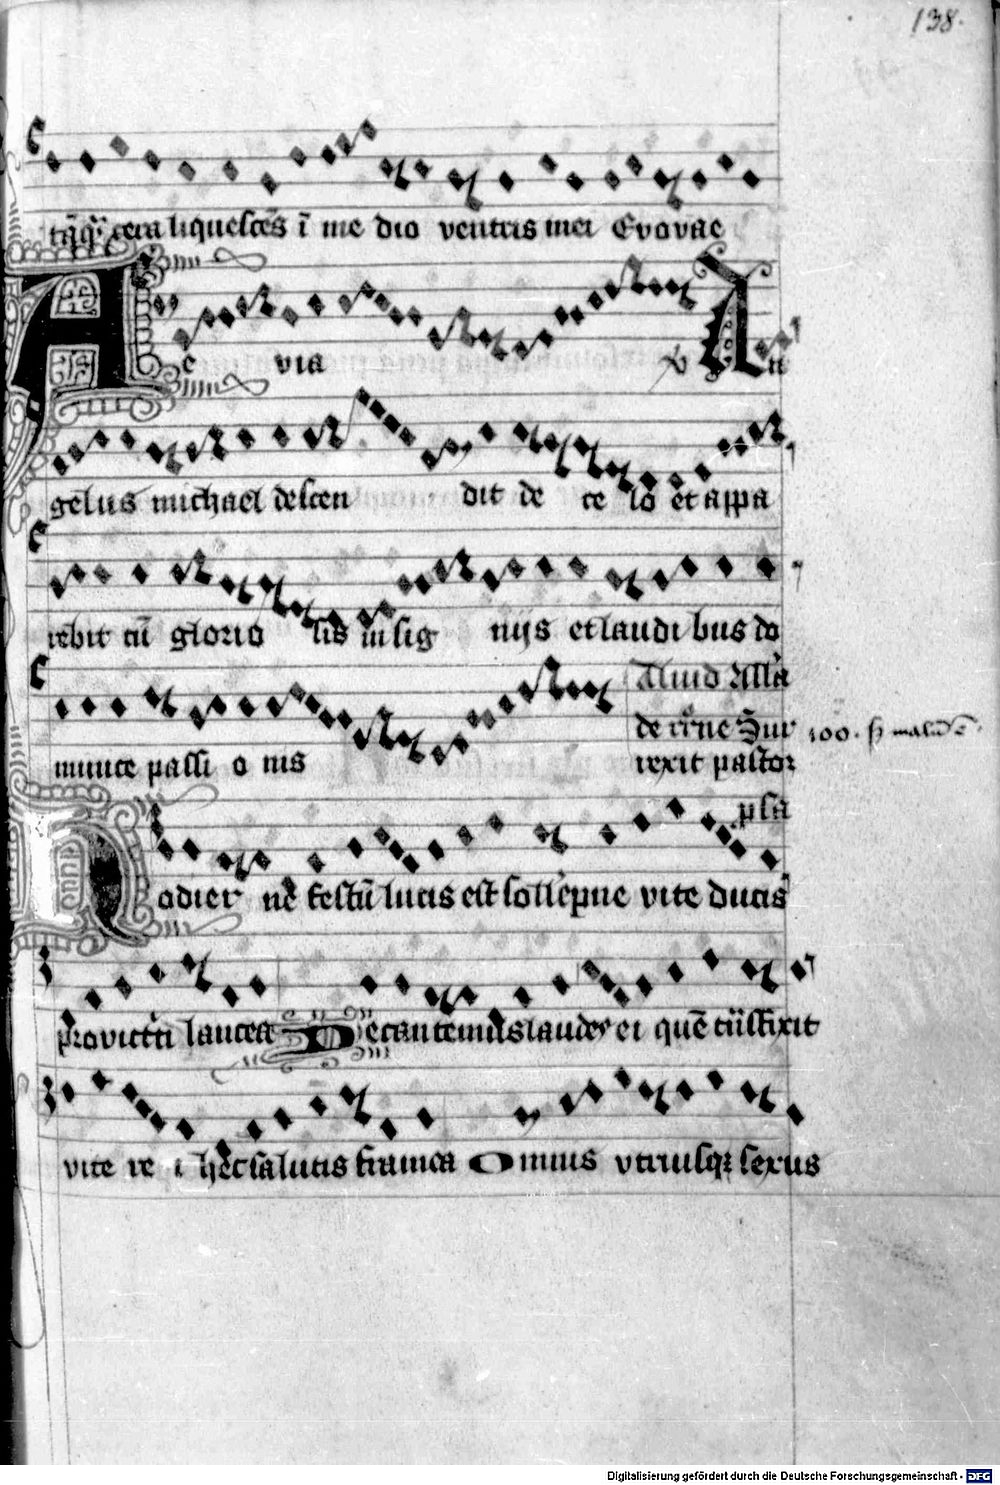 138.
tāq̄ȝ cera liquescēs ī me dio ventris mei Evovae
A e via ꝟ An
gelus michael descen dit de ce lo et appa
rebit cū glorio sis in sig nijs et laudi bus do
Aliud Alla
de
munce passi o nis
rexit pastor
psa
Hodier ne festū lucis est sollēpne vite ducis
pro victri lancea Decantemus laudes ei quē cū fixit
vite re i hec salutis framea Omnis vtriusqȝ sexus
Digitalisierung gefördert durch die Deutsche Forschungsgemeinschaft - DFG